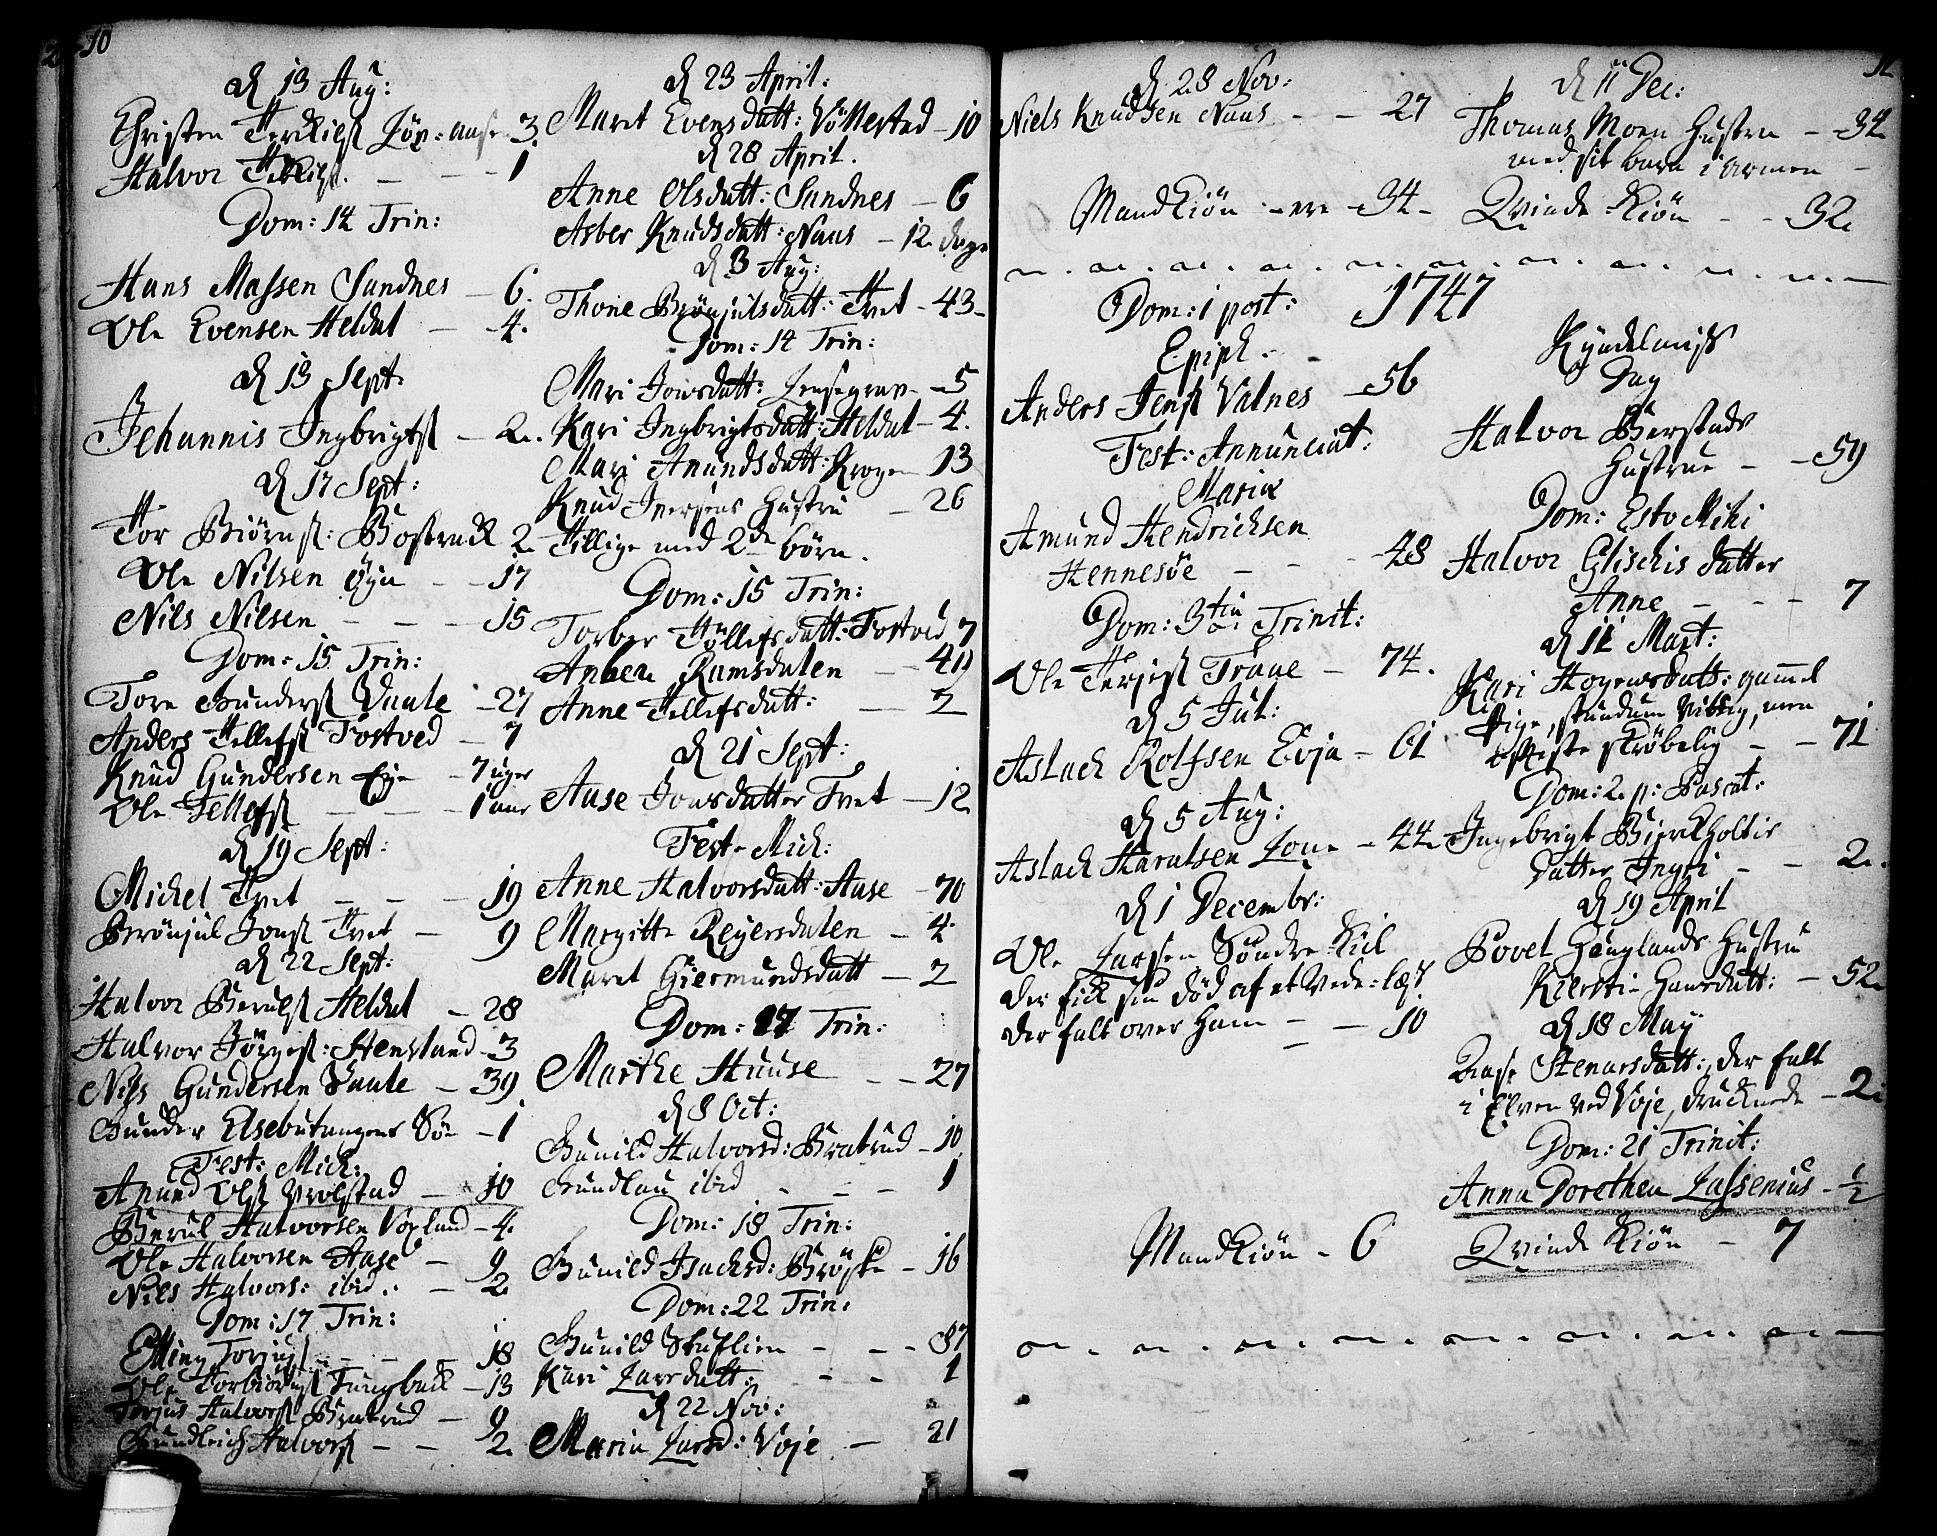 10
d 13 Aug:
Christen Terkiels Løv:aase 3.
Halvor Tercki - - - 1
Dom: 14 Trin:
Hans Massen Sundnes - 6.
Ole Evensen Heldal - 4.
d 13 Sept.
Johannis Ingbrigts - 2.
d 17 Sept:
Tor Biørns: Bostrack 2
Ole Nilsen Øyn - - 17
Nils Nilsen - - - 15
Dom: 15 Trin:
Tore Gunders Vaale - 27
Anders Tellefs Fostved - 7
Knud Gundersen Eje - 7 uger
Ole Tellefs - - - 1 aar
d 19 Sept:
Michel Tvet - - - 19
Brønjul Jons Tvet - 9
d 22 Sept:
Halvor Beruls Heldal - 28
Halvor Jørges: Hensland - 3
Nils Gundersen Vaale - 39
Gunder Elsebutangens Sø - 1
Fest: Mich:
Amund Ols Vrolstad - 10
Berul Halvorsen Voxland - 4.
Ole Halvorsen Aase - 9
Nils Halvors: ibid: - 2
Dom: 17 Trin:
Elling Torjus - - - 18
Ole Torbiørns Tungback - 13
Terjus Halvors Bratrud - 9
Gundleich Halvors - - 2
d 23 April:
Maret Evensdatt: Vottestad - 10
d 28 April.
Anne Olsdatt: Sundnes - 6
Asber Knudsdatt: Naas - 12 dage
d 3 Aug:
Thone Brønjulsdatt: Tvet - 43 -
Dom: 14 Trin:
Mari Jonsdatt: Lensegrav - 5
Kari Ingbrigtsdatt: Heldal - 4.
Mari Anundsdatt: Krogen 13
Knud Iversens Hustru - 26
Tillige med 2de børn.
Dom: 15 Trin:
Torber Tøllefsdatt: Fostved 7
Anben Ramsdalen - 40
Anne Tellefsdatt: - 5
d 21 Sept:
Aase Jonsdatter Tvet - 12
Fest. Mich:
Anne Halvorsdatt: Aase - 70
Margitte Reyersdalen - 4
Maret Giermundsdatt - 2
Dom: 17 Trin:
Marthe Huuse - - 27
d 8 Oct:
Gunild Halvorsd: Bratrud - 10
Gundlau ibid - - - 1
Dom: 18 Trin:
Gunild Isachsd: Brøske - 16
Dom: 22 Trin:
Gunild Stuflien - - - 87
Kari Larsdatt: - - - 1
d 22 Nov:
Maria Larsd: Voje - 21
d 28 Nov:
Niels Knudsen Naas - - 27
Mandkiøn - er - 34 -
1747
Dom: 1 post:
Epiph.
Anders Jens Valnes - 56
Fest: Annunciat:
Mariæ
Amund Hendrichsen
Hennesøe - - - 48
Dom: 3tia Trinit:
Ole Terjes Traae - 74.
d 5 Jul:
Aslach Rolfsen Evja - 61
d 5 Aug:
Aslach Haraldsen Lone - 44
d 1 Decembr:
Ole Larsen Søndre Kiil
der fick sin død af et Vede-læs
der falt over ham - - 10
Mandkiøn - 6
11
d 11 Dec:
Thomas Moen Hustru - 34
med sit barn i armen -
Qvinde-kiøn - - 32
Kyndelmiss
Dag
Halvor Berstads
Hustrue - - 59
Dom: Esto Mihi
Halvor Glischis datter
Anne - - - 7
d 12 Mart:
Kari Hogensdatt: gammel
Pige, stundum Vittig, men
oftiste skrøbelig - - 71
Dom: 2. p: Pascat:
Ingebrigt Bierkholtis
datter Ingri - - 2.
d 19 April
Povel Hauglands Hustru
Kiersti Hansdatt: - 52
d 18 May
Aase Stenarsdatt: der falt
i Elven ved Voje, drucknede - 2
Dom: 21 Trinit:
Anna Dorethea Lassenius - 1/2
Qvinde kiøn - 7